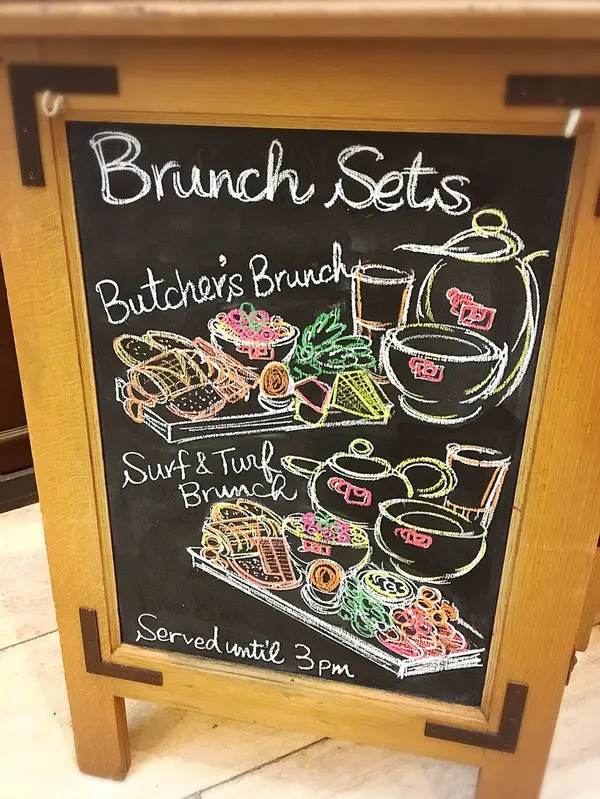 Brunch Sets
Butcher's Brunch
Surf & Turf
Brunch
Served until 3pm